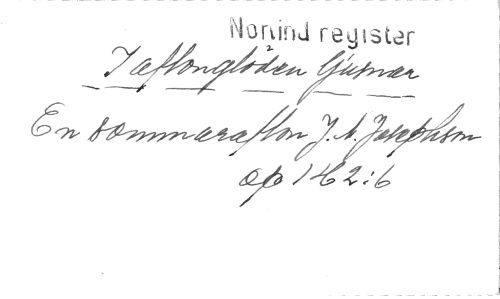 Norlind register
I aftonglöden ljusnar
En sommarafton J. A. Josephson
op 142:6